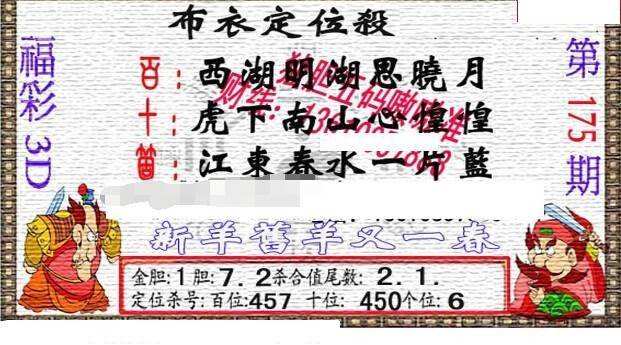 布衣定位殺
福彩3D
第175期
百：西湖明湖思曉月
十：虎下南山心惶惶
箇：江東春水一片藍
新羊舊羊又一春
金胆:1胆:7.2杀合值尾数:2.1.
定位杀号:百位:457 十位:450个位:6